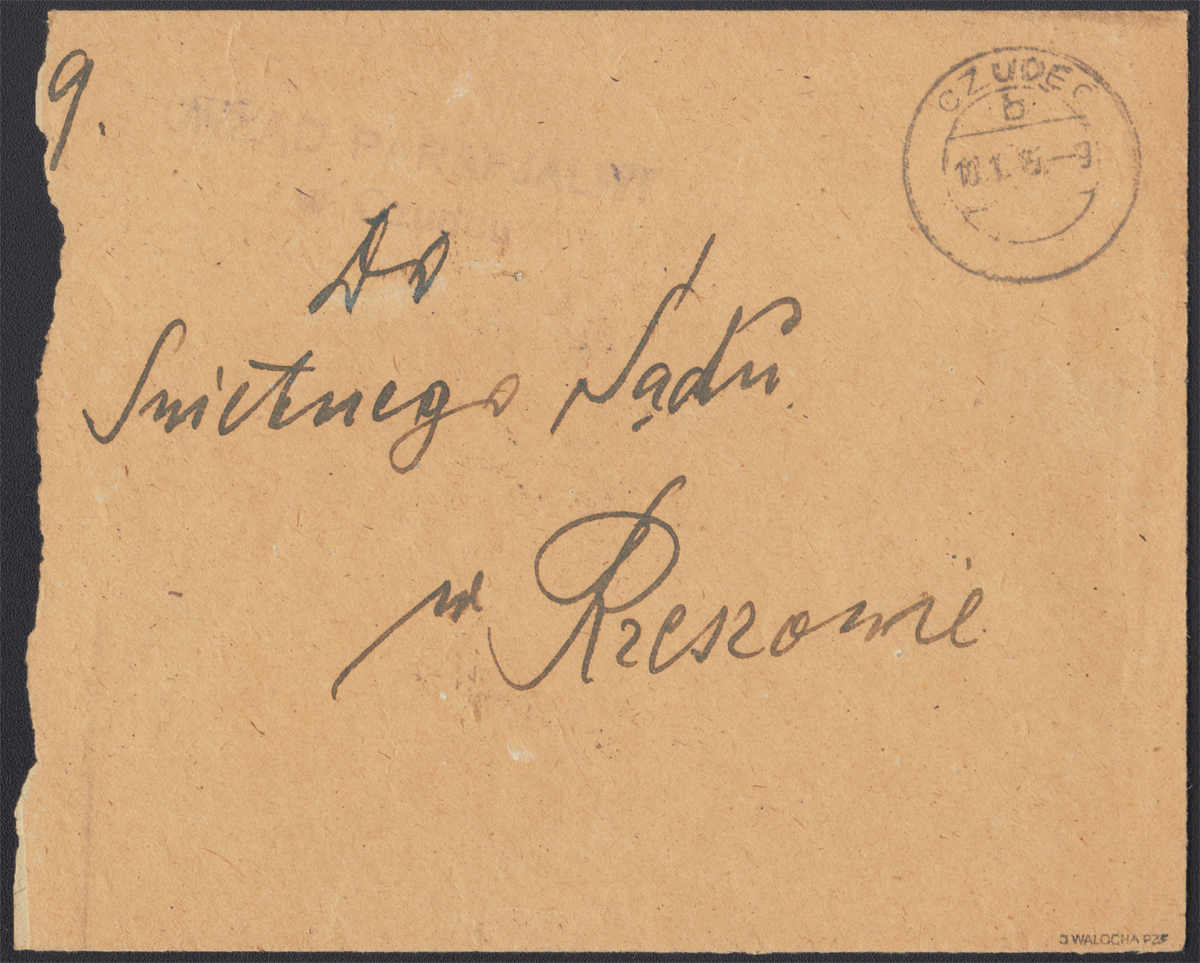 9.
URZĄD PARAFIALNY
w Czudcu
CZUDEC
b
Do
Świetnego Sądu
w Rzeszowie
J WALOCHA PZF